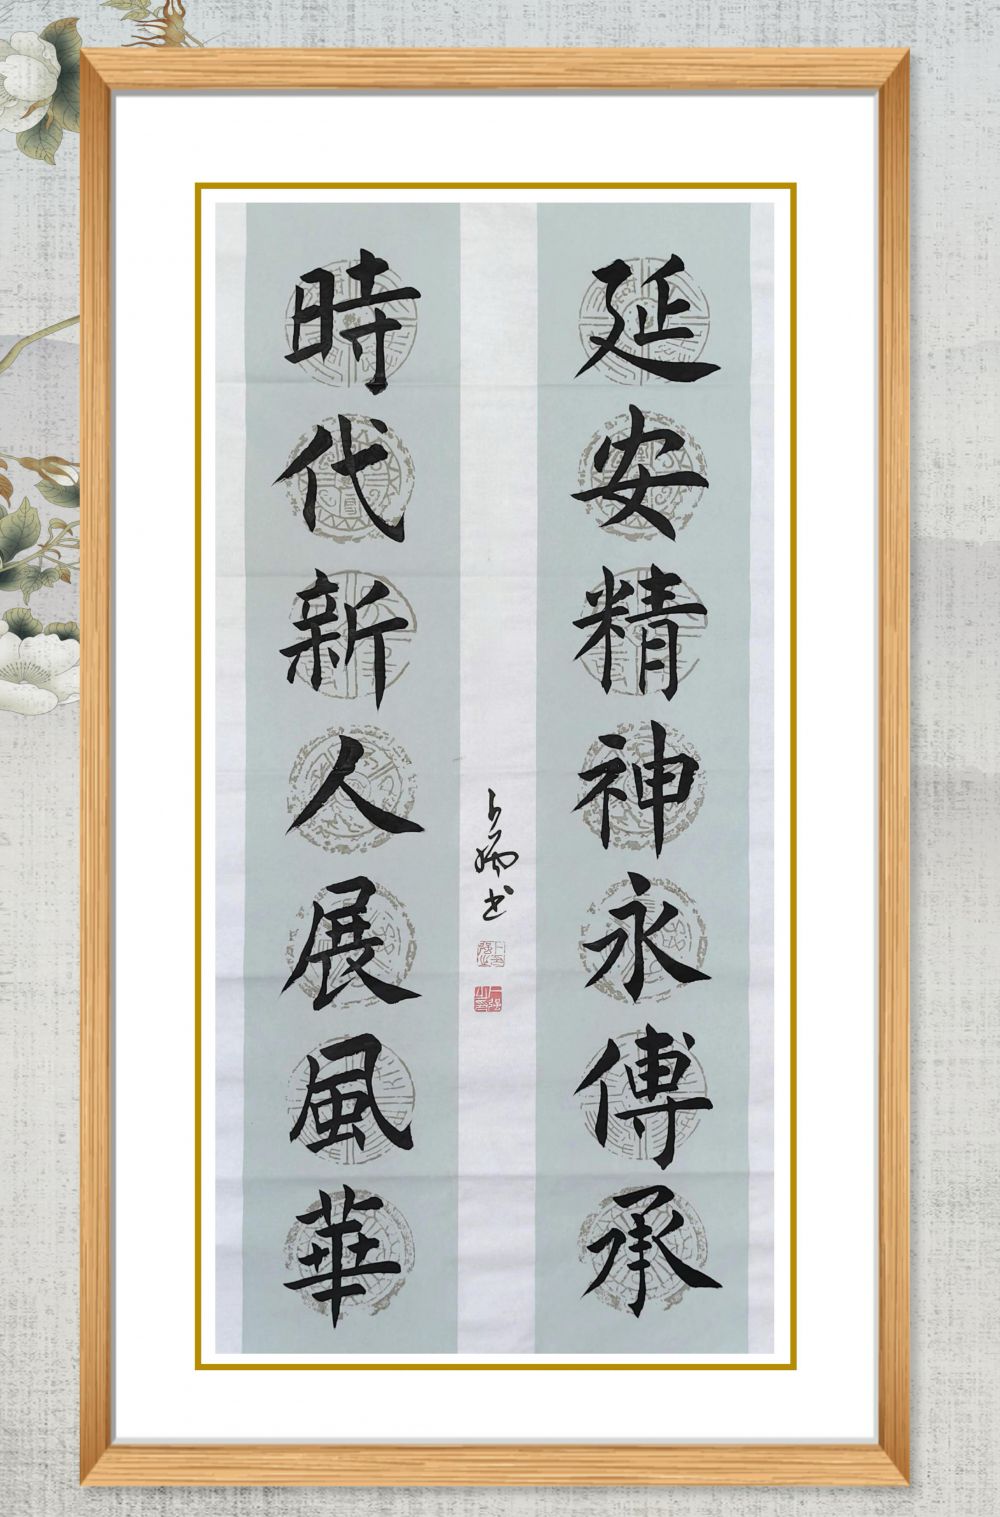 延安精神永傳承
時代新人展風華